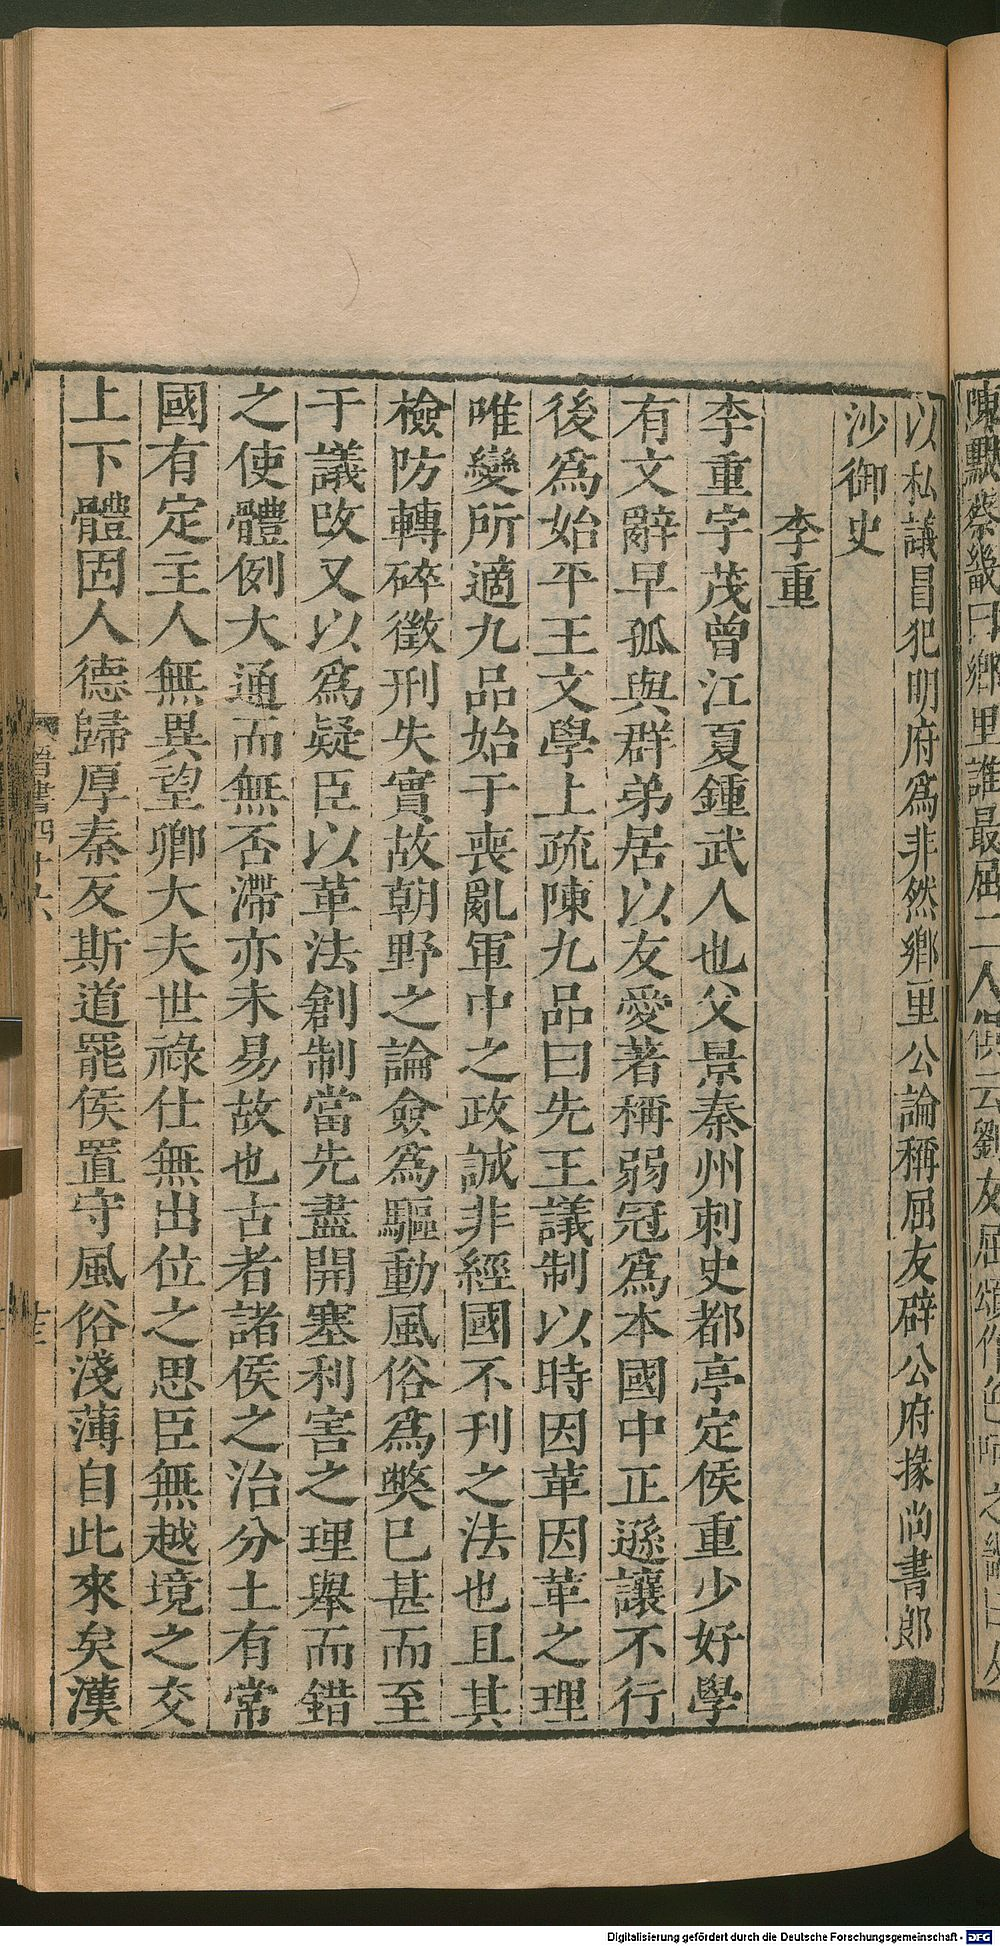 陳默蔡畿曰鄉里誰最屈二人俱云劉友屈
以私議冒犯明府爲非然鄉里公論稱屈友辟公府掾尚書郎
沙御史
李重
李重字茂曾江夏鍾武人也父景秦州刺史都亭定侯重少好學
有文辭早孤與群弟居以友愛著稱弱冠爲本國中正遜讓不行
後爲始平王文學上疏陳九品曰先王議制以時因革因革之理
唯變所適九品始于喪亂軍中之政誠非經國不刊之法也且其
檢防轉碎徵刑失實故朝野之論僉爲驅動風俗爲獘已甚而至
于議改又以爲疑臣以革法創制當先盡開塞利害之理舉而錯
之使體例大通而無否滯亦未易故也古者諸侯之治分土有常
國有定主人無異望卿大夫世祿仕無出位之思臣無越境之交
上下體固人德歸厚秦反斯道罷侯置守風俗淺薄自此來矣漢
晉書四十六
Digitalisierung gefördert durch die Deutsche Forschungsgemeinschaft - DFG